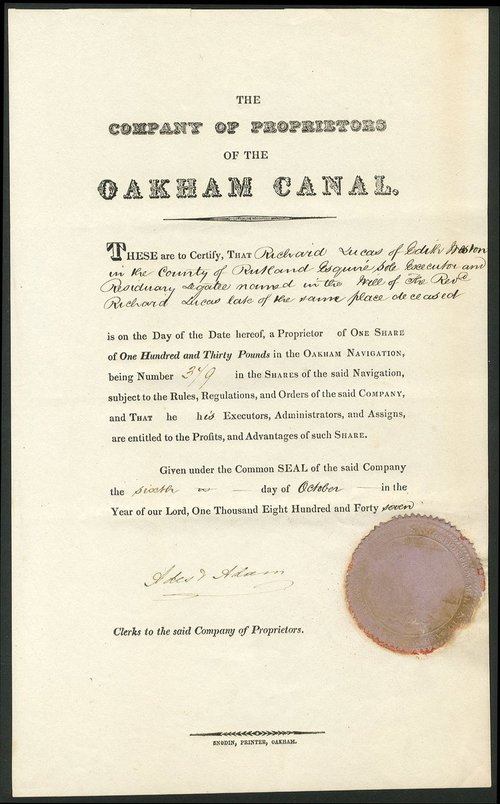 THE
COMPANY OF PROPRIETORS
OF THE
OAKHAM CANAL.
THESE are to Certify, THAT Richard Lucas of Edith Weston
in the County of Rutland Esquire, Sole Executor and
Residuary Legatee named in the Will of The Revd.
Richard Lucas late of the same place deceased
is on the Day of the Date hereof, a Proprietor of ONE SHARE
of One Hundred and Thirty Pounds in the OAKHAM NAVIGATION,
being Number 379 in the SHARES of the said Navigation,
subject to the Rules, Regulations, and Orders of the said COMPANY,
and THAT he his Executors, Administrators, and Assigns,
are entitled to the Profits, and Advantages of such SHARE.
Given under the Common SEAL of the said Company
the sixth day of October in the
Year of our Lord, One Thousand Eight Hundred and Forty seven
Adam
Clerks to the said Company of Proprietors.
SNODIN, PRINTER, OAKHAM.